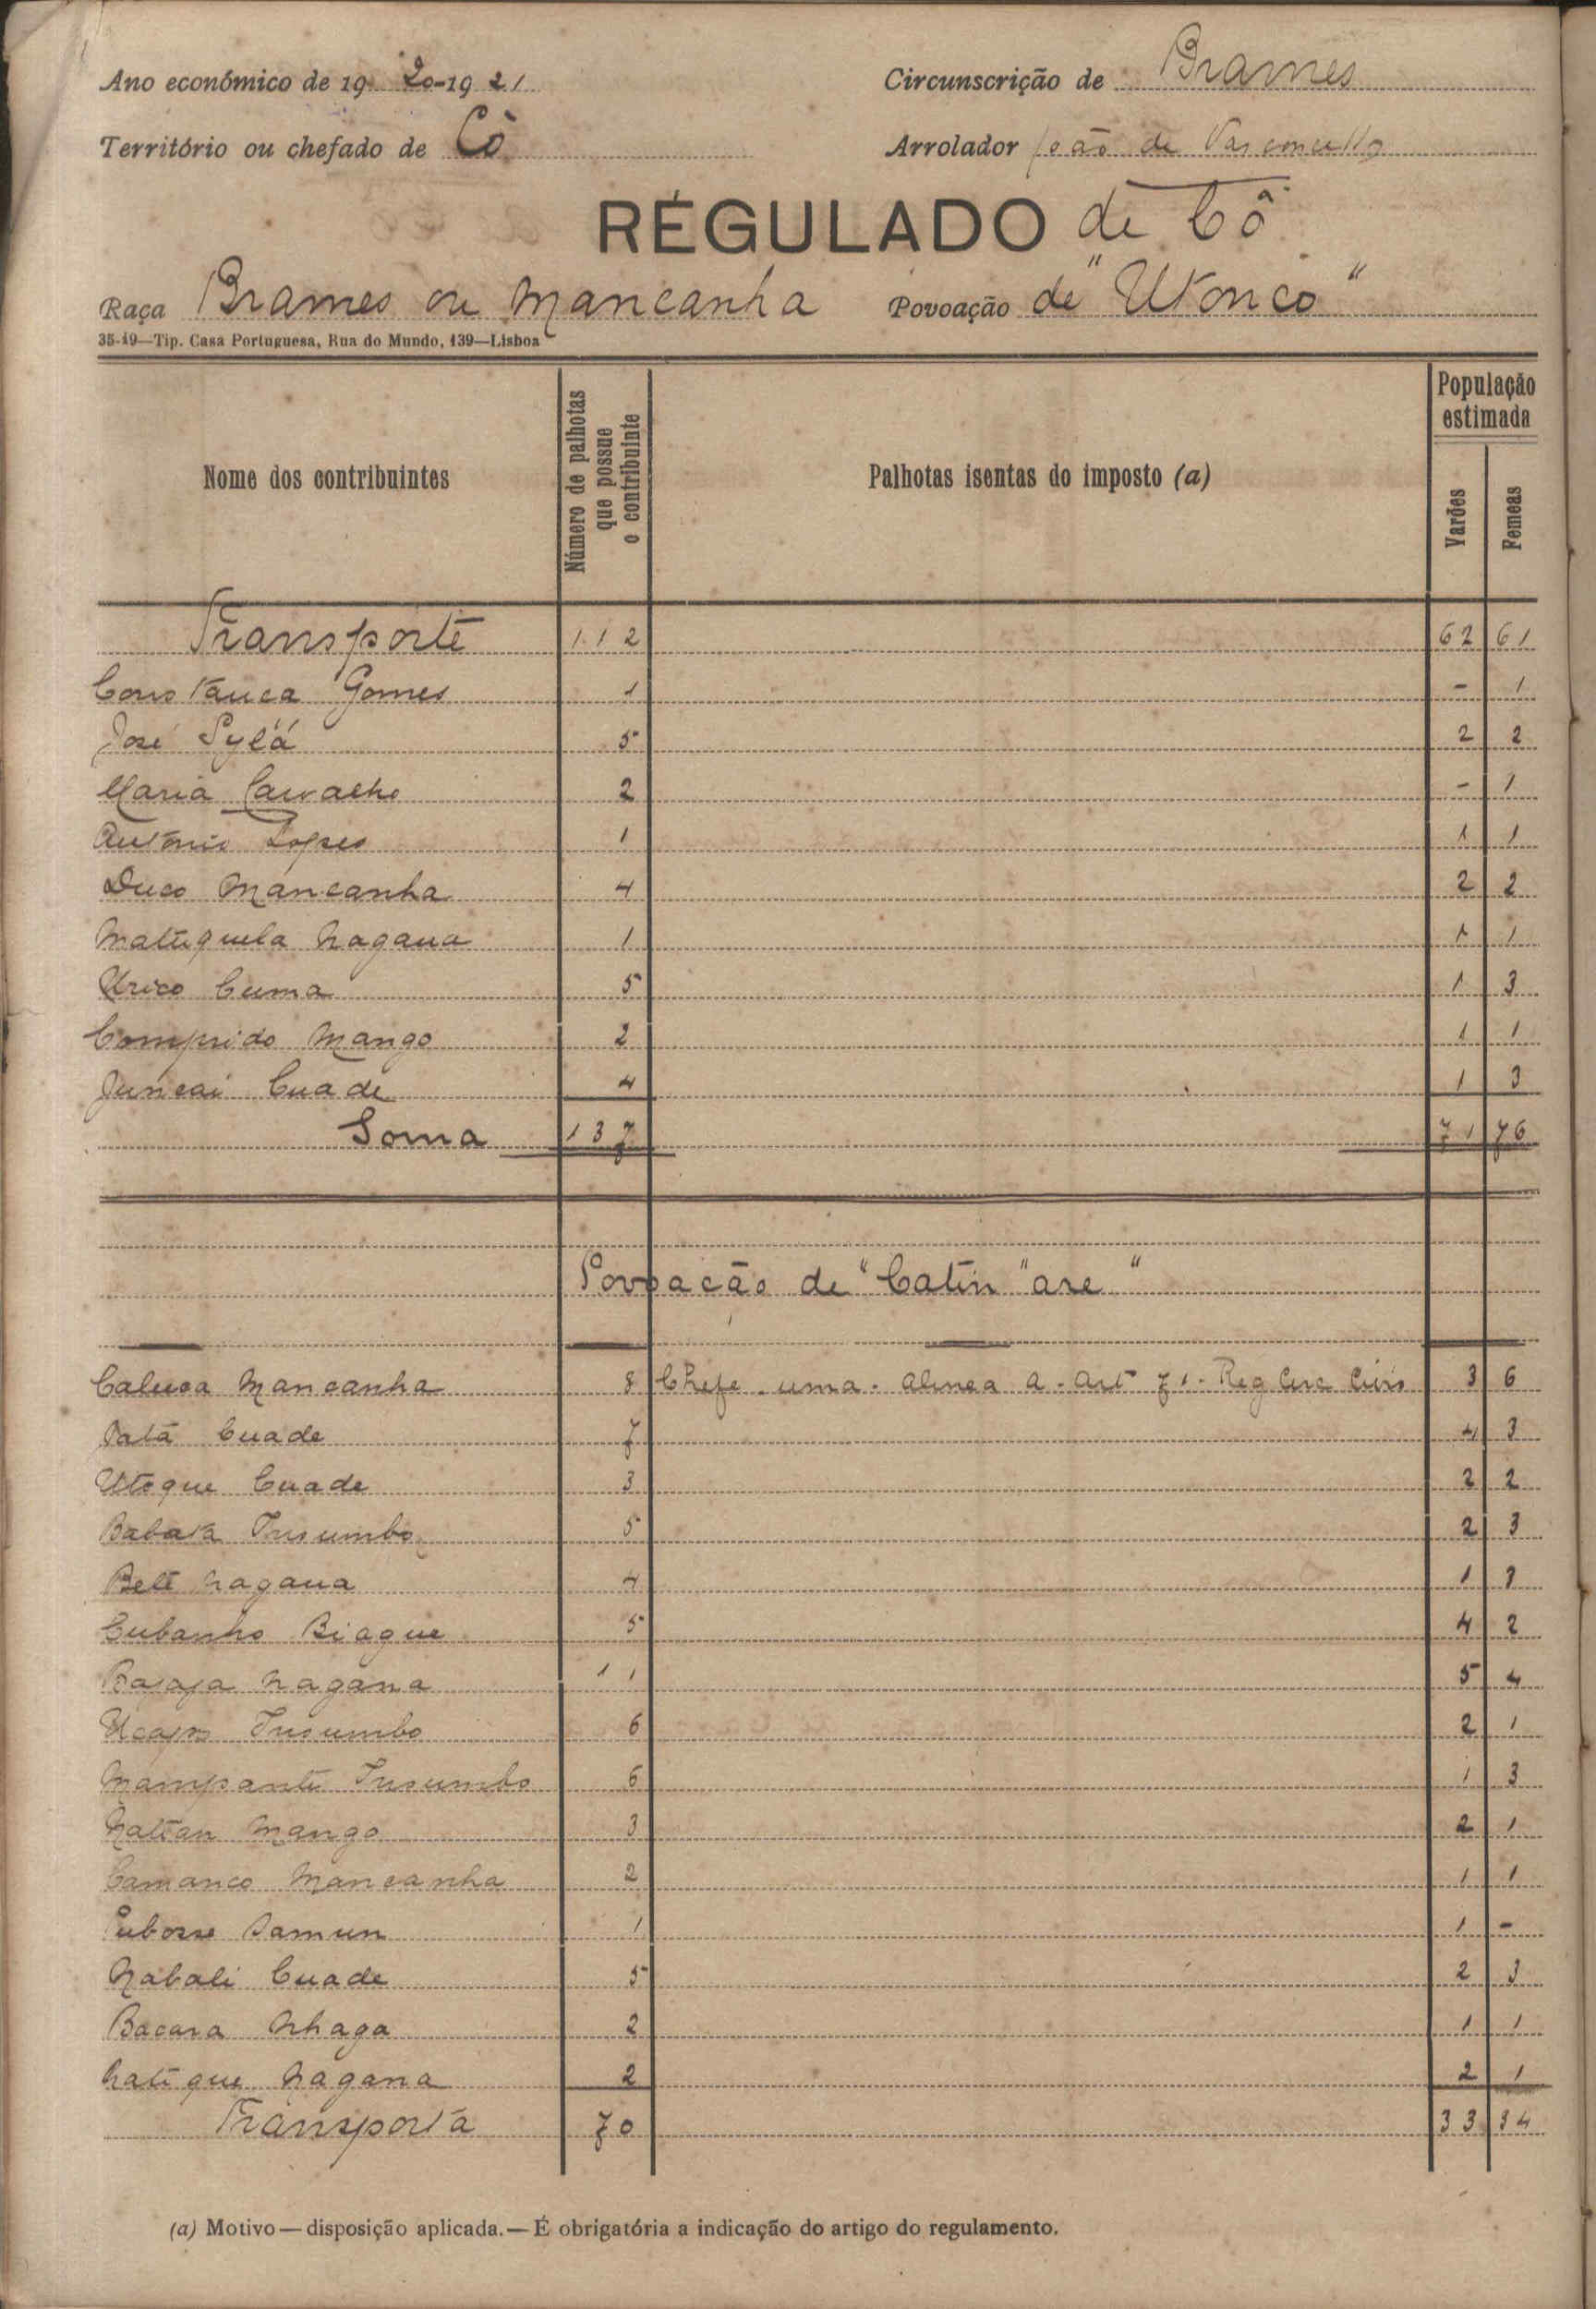 Ano económico de 1920-1921
Circunscrição de Brames
Território ou chefado de Cô
Arrolador João de Vasconcellos
REGULADO de Cô
Raça Brames ou Mancanha
Povoação de "Utonco"
35-19—Tip. Casa Portuguesa, Rua do Mundo, 139—Lisboa
Nome dos contribuintes
Número de palhotas que possue o contribuinte
Palhotas isentas do imposto (a)
População estimada
Varões
Femeas
Transporte 112 62 61
Constança Gomes 1 - 1
José Sylá 5 2 2
Maria Carvalho 2 - 1
António Lopes 1 1 1
Duco Mancanha 4 2 2
Matuquela Nagana 1 1 1
Urico Cuma 5 1 3
Comprido Mango 2 1 1
Juncai Cuade 4 1 3
Soma 137 71 76
Povoacão de "Catin"are"
Caluca Mancanha 8 Chefe uma. alinea a. art 71. Reg Circ Civis 3 6
Patá Cuade 7 4 3
Utoque Cuade 3 2 2
Babata 5 2 3
Bete Nagana 4 1
Cubanho Biague 5 4 2
Bajaja Nagana 11 5 4
6 2 1
Mampante 6 1 3
Naltan Mango 3 2 1
Camanco Mancanha 2 1 1
Samun 1 1 -
Nabali Cuade 5 2 3
Bacara Nhaga 2 1 1
Natique Nagana 2 2 1
Transporta 70 33 34
(a) Motivo—disposição aplicada.—É obrigatória a indicação do artigo do regulamento.